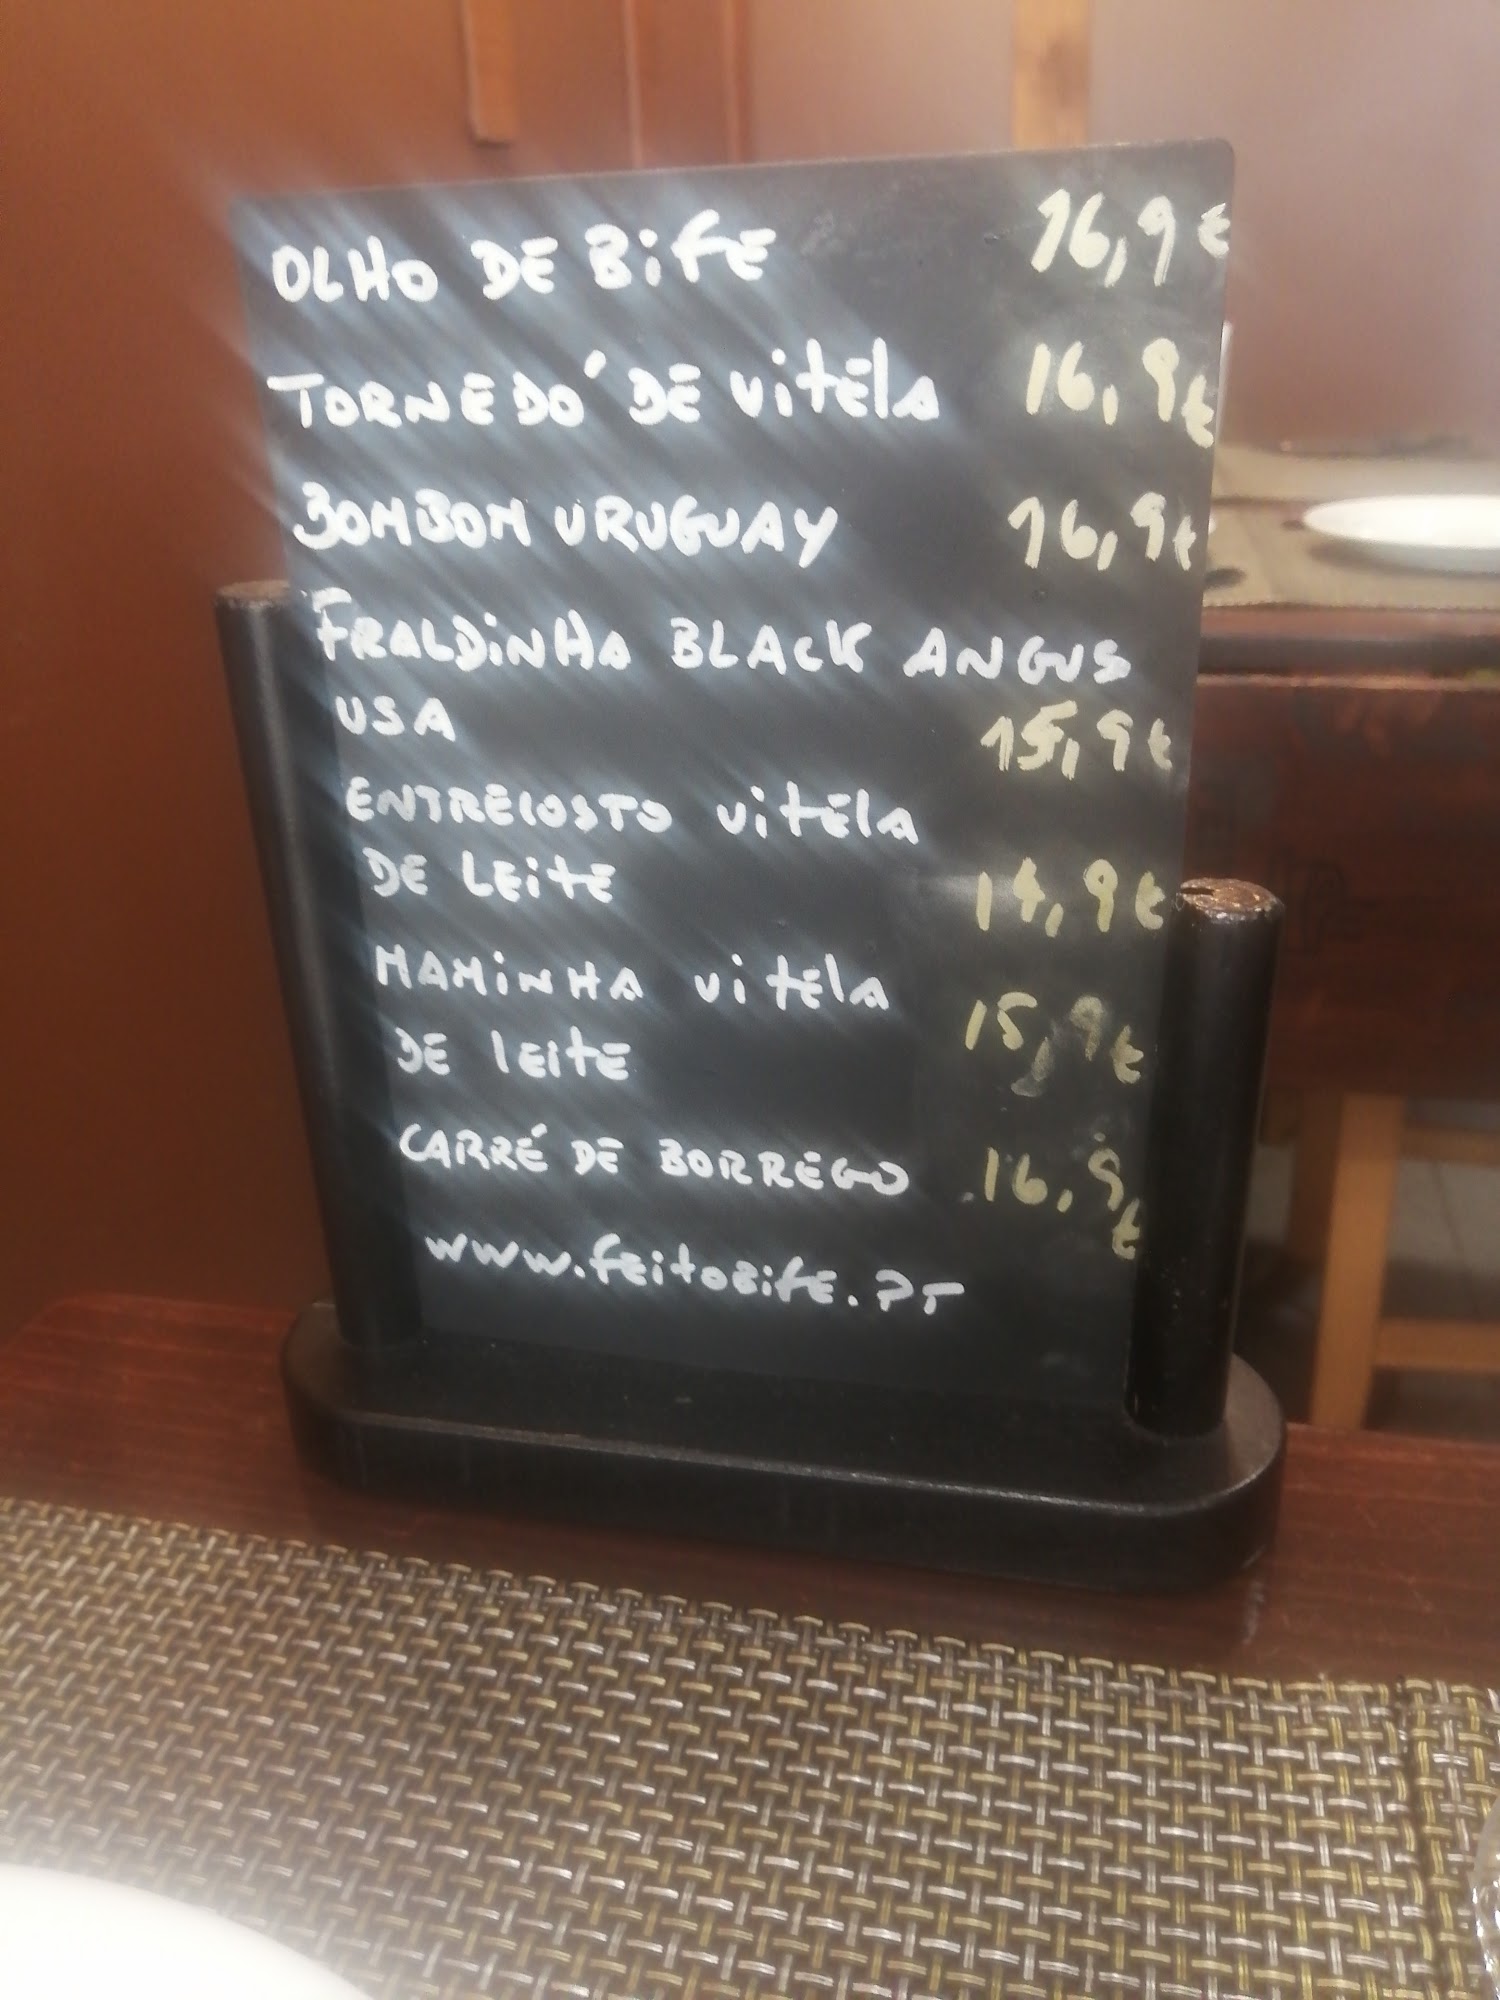 OLHO DE BIFE 16,9€
TORNEDÓ DE VITELA 16,9€
BOMBOM URUGUAY 16,9€
FRALDINHA BLACK ANGUS
USA 15,9€
ENTRECOSTO VITELA
DE LEITE 14,9€
MAMINHA VITELA
DE LEITE 15,9€
CARRÉ DE BORREGO 16,9€
www.feitobife.PT